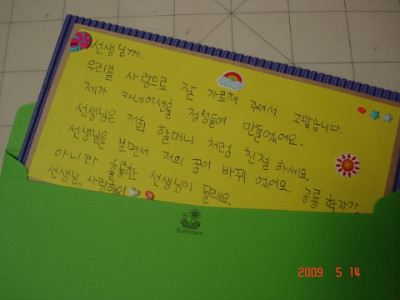 선생님께.
우리를 사랑으로 잘 가르쳐 주셔서 고맙습니다.
제가 카네이션을 정성들여 만들었어요.
선생님은 저희 할머니 처럼 친절 하세요.
선생님을 보면서 저의 꿈이 바뀌 었어요. 공룡 학자가
아니라 훌륭한 선생님이 될래요.
선생님, 사랑해요
2009 5 14